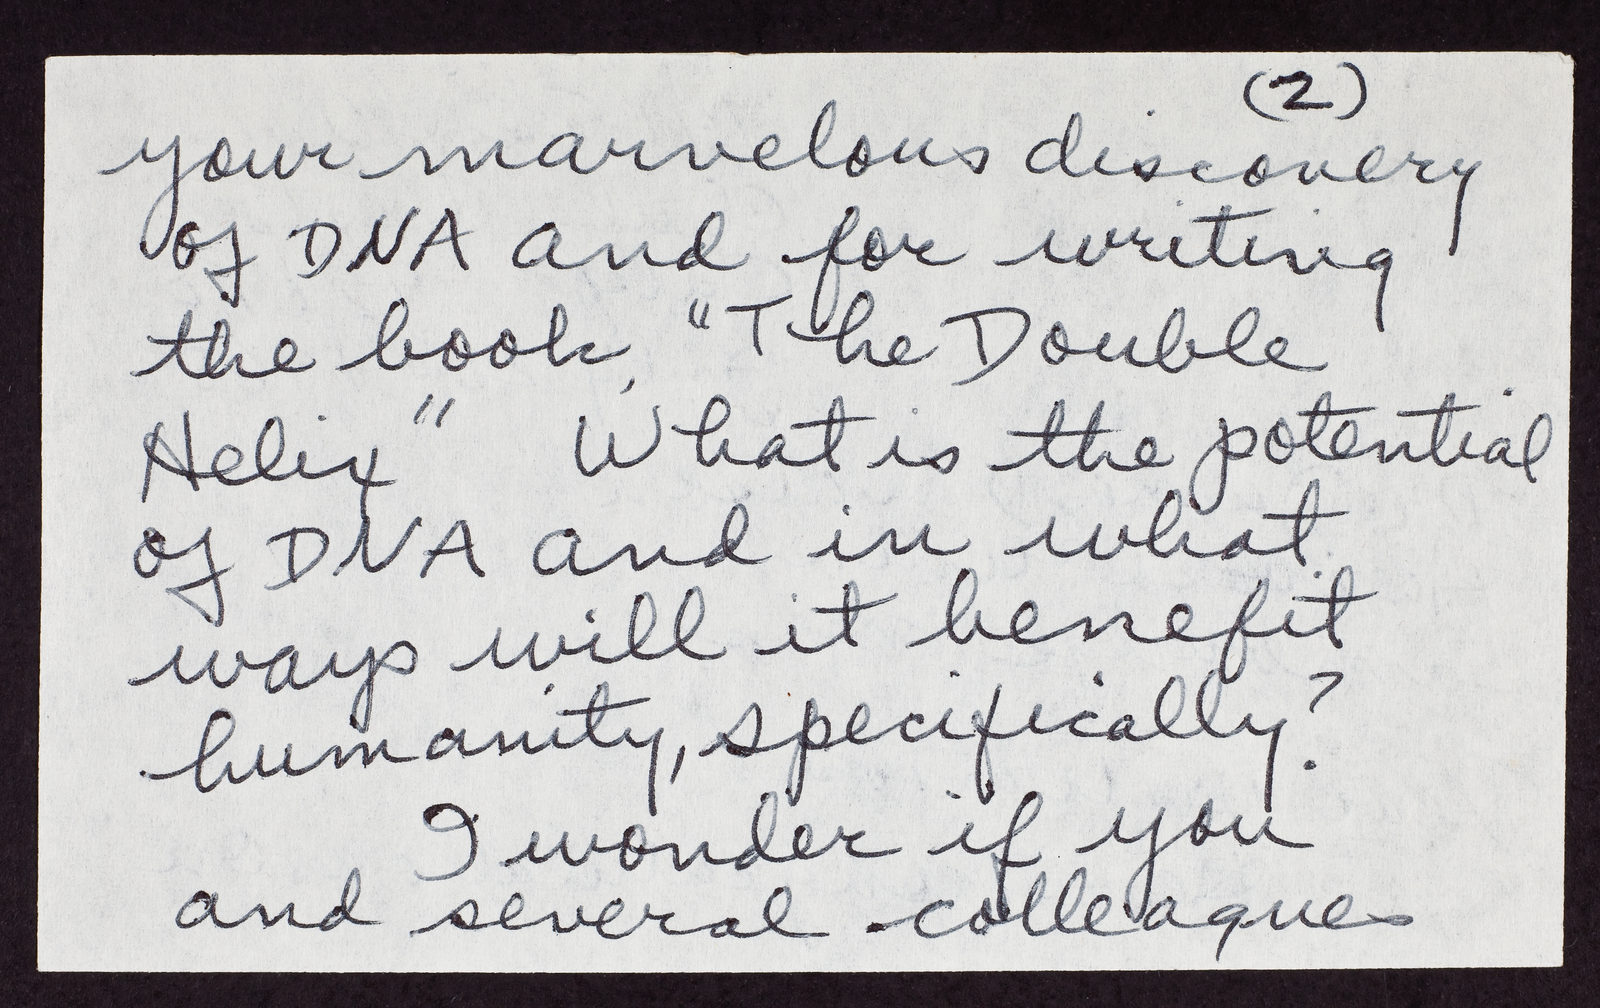 (2)
your marvelous discovery
of DNA and for writing
the book, "The Double
Helix" What is the potential
of DNA and in what
ways will it benefit
humanity, specifically?
I wonder if you
and several colleagues